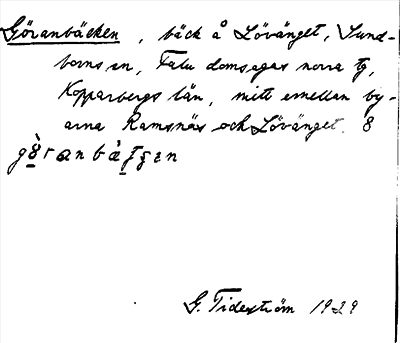 Göranbäcken, bäck å Lövänget, Sund-
borns sn, Falu domsagas norra tg,
Kopparbergs län, mitt emellan by-
arna Ramsnäs och Lövänget. 8
G. Tideström 1929